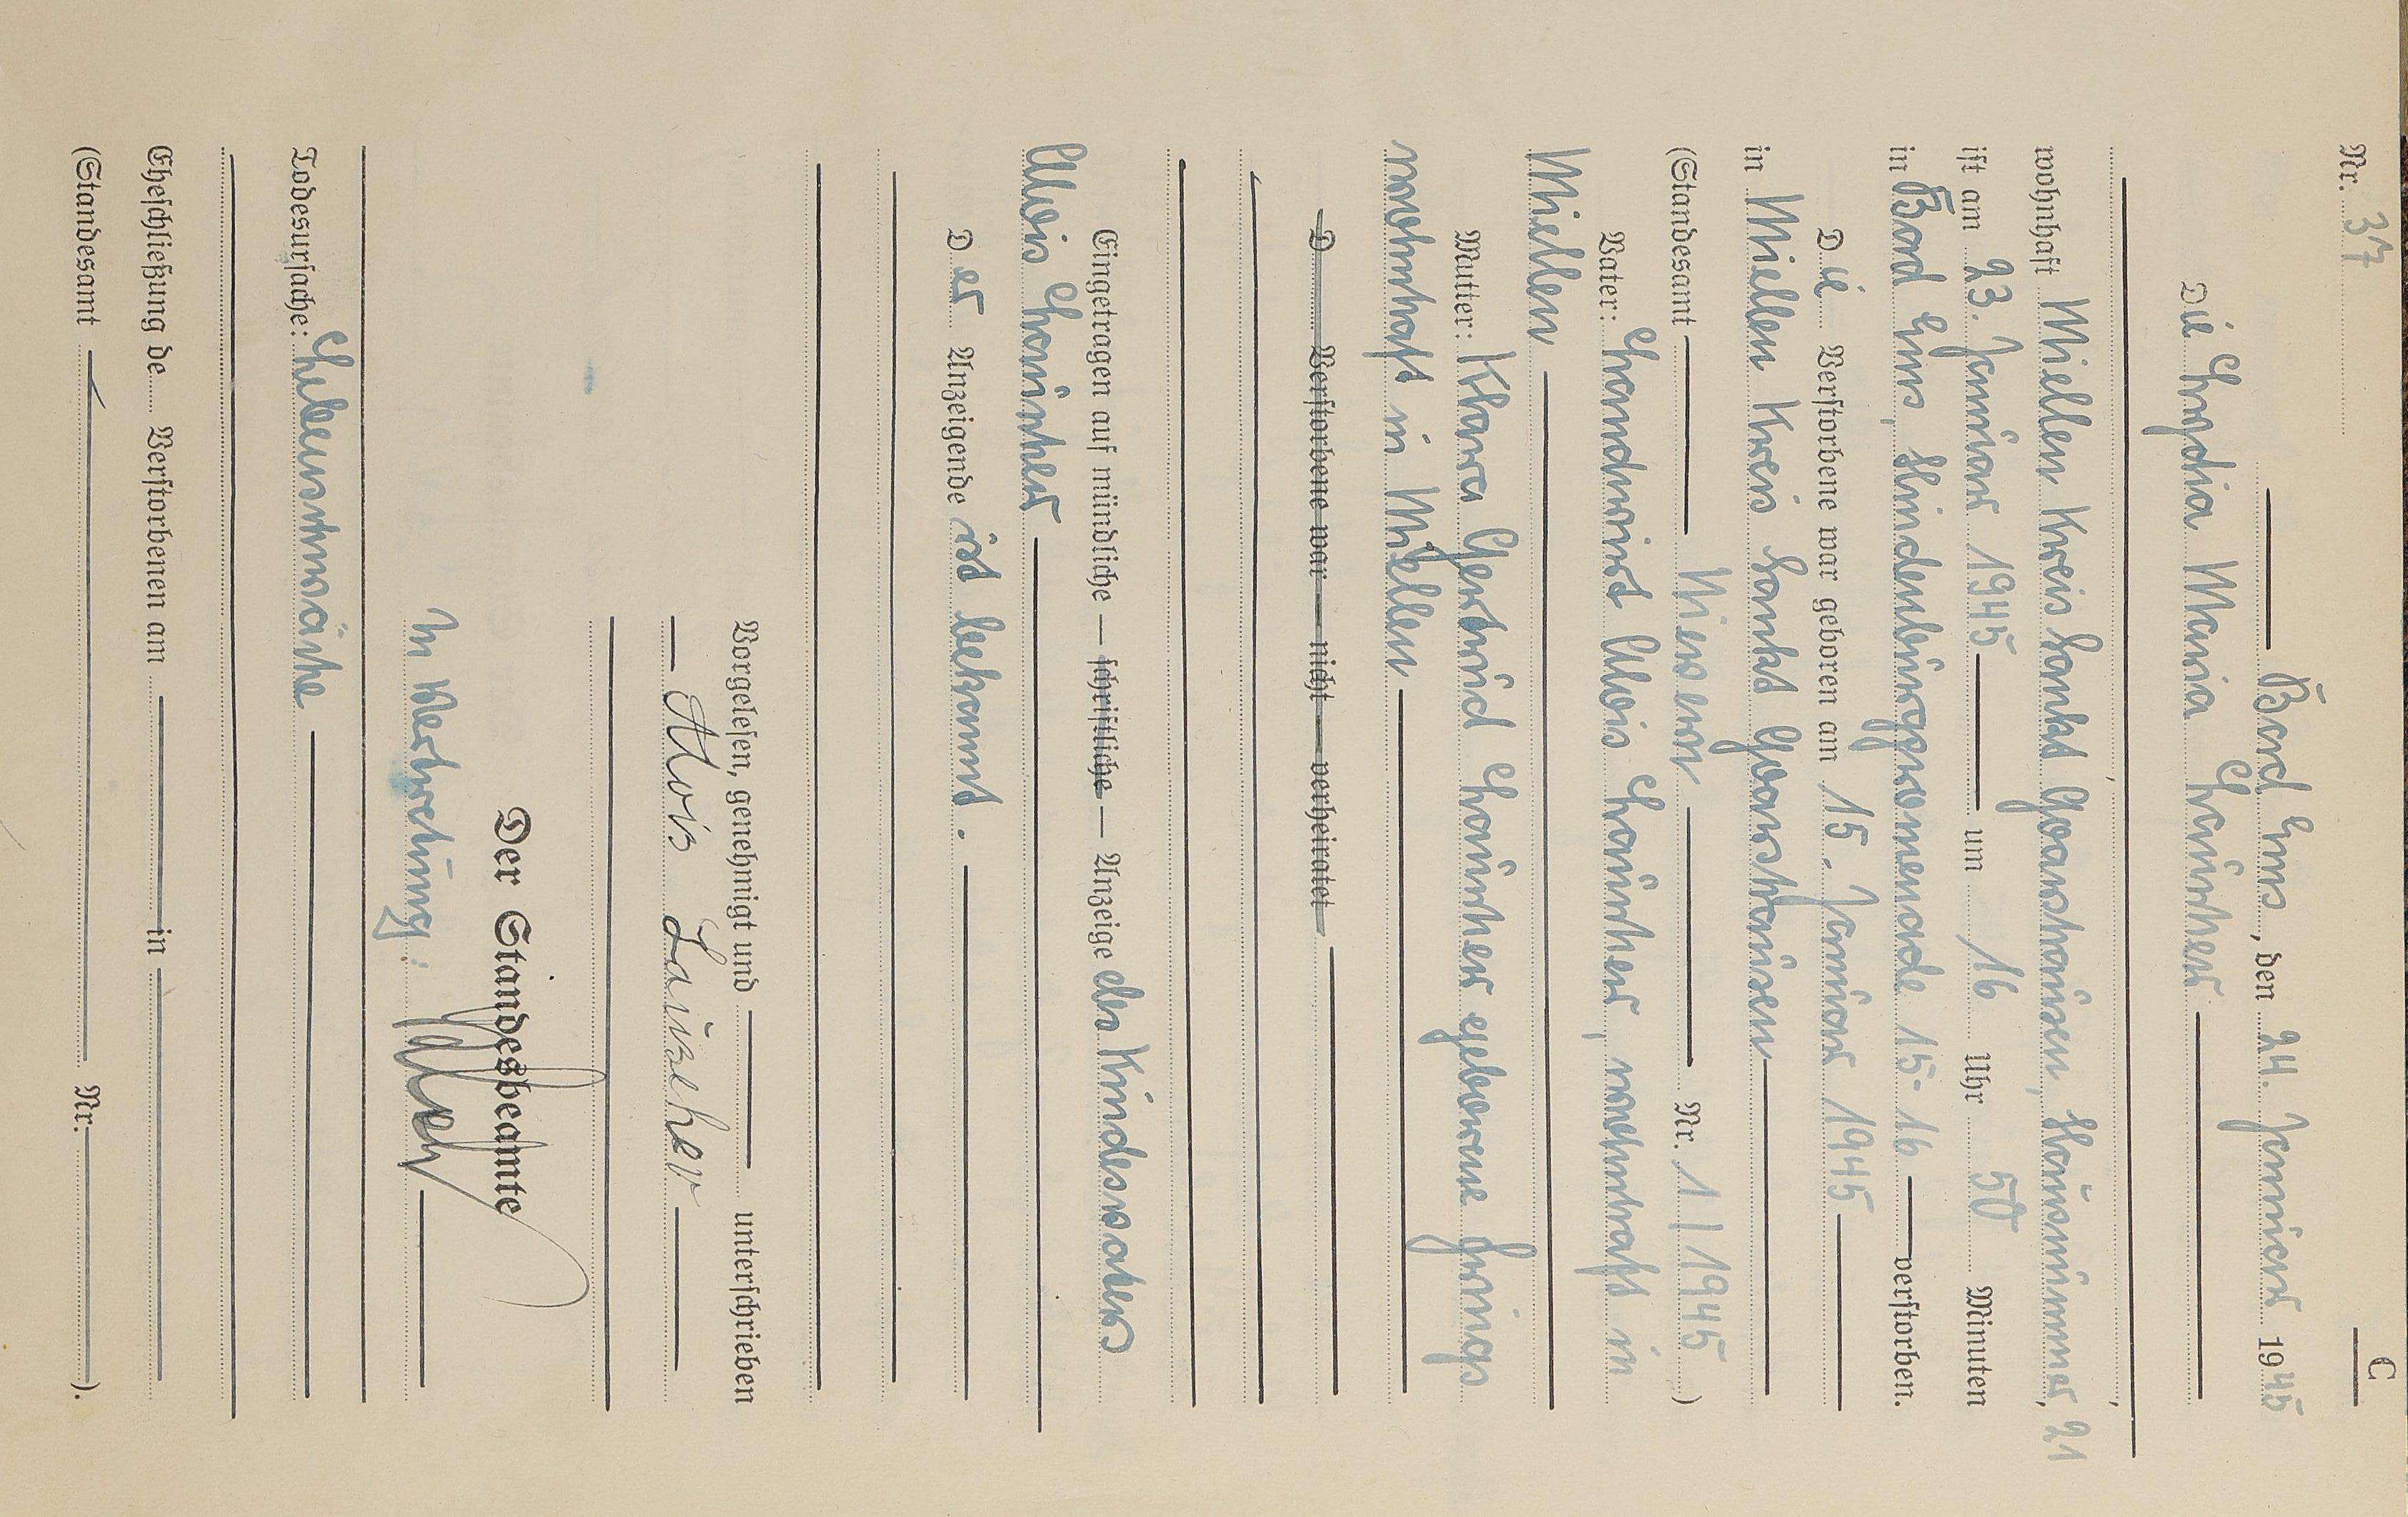 C
Nr. 37
Bad Ems, den 24. Januar 1945
Die Lydia Maria Lauxher
wohnhaft Miellen Kreis Sankt Goarshausen, Hausnummer 21,
ist am 23. Januar 1945 um 16 Uhr 50 Minuten
in Bad Ems, Hindenburgpromenade 15-16 verstorben.
Die Verstorbene war geboren am 15. Januar 1945
in Miellen Kreis Sankt Goarshausen
(Standesamt Nievern Nr. 1/1945)
Vater: Landwirt Alois Lauxher, wohnhaft in
Miellen
Mutter: Klara Gertrud Lauxher geborene
wohnhaft in Miellen
D Verstorbene war – nicht – verheiratet
Eingetragen auf mündliche – schriftliche – Anzeige des Kindesvaters
Alois Lauxher
Der Anzeigende ist bekannt.
Vorgelesen, genehmigt und unterschrieben
Alois Lauxher
Der Standesbeamte
In Vertretung:
Todesursache: Lebensschwäche
Eheschließung de Verstorbenen am in
(Standesamt Nr. ).